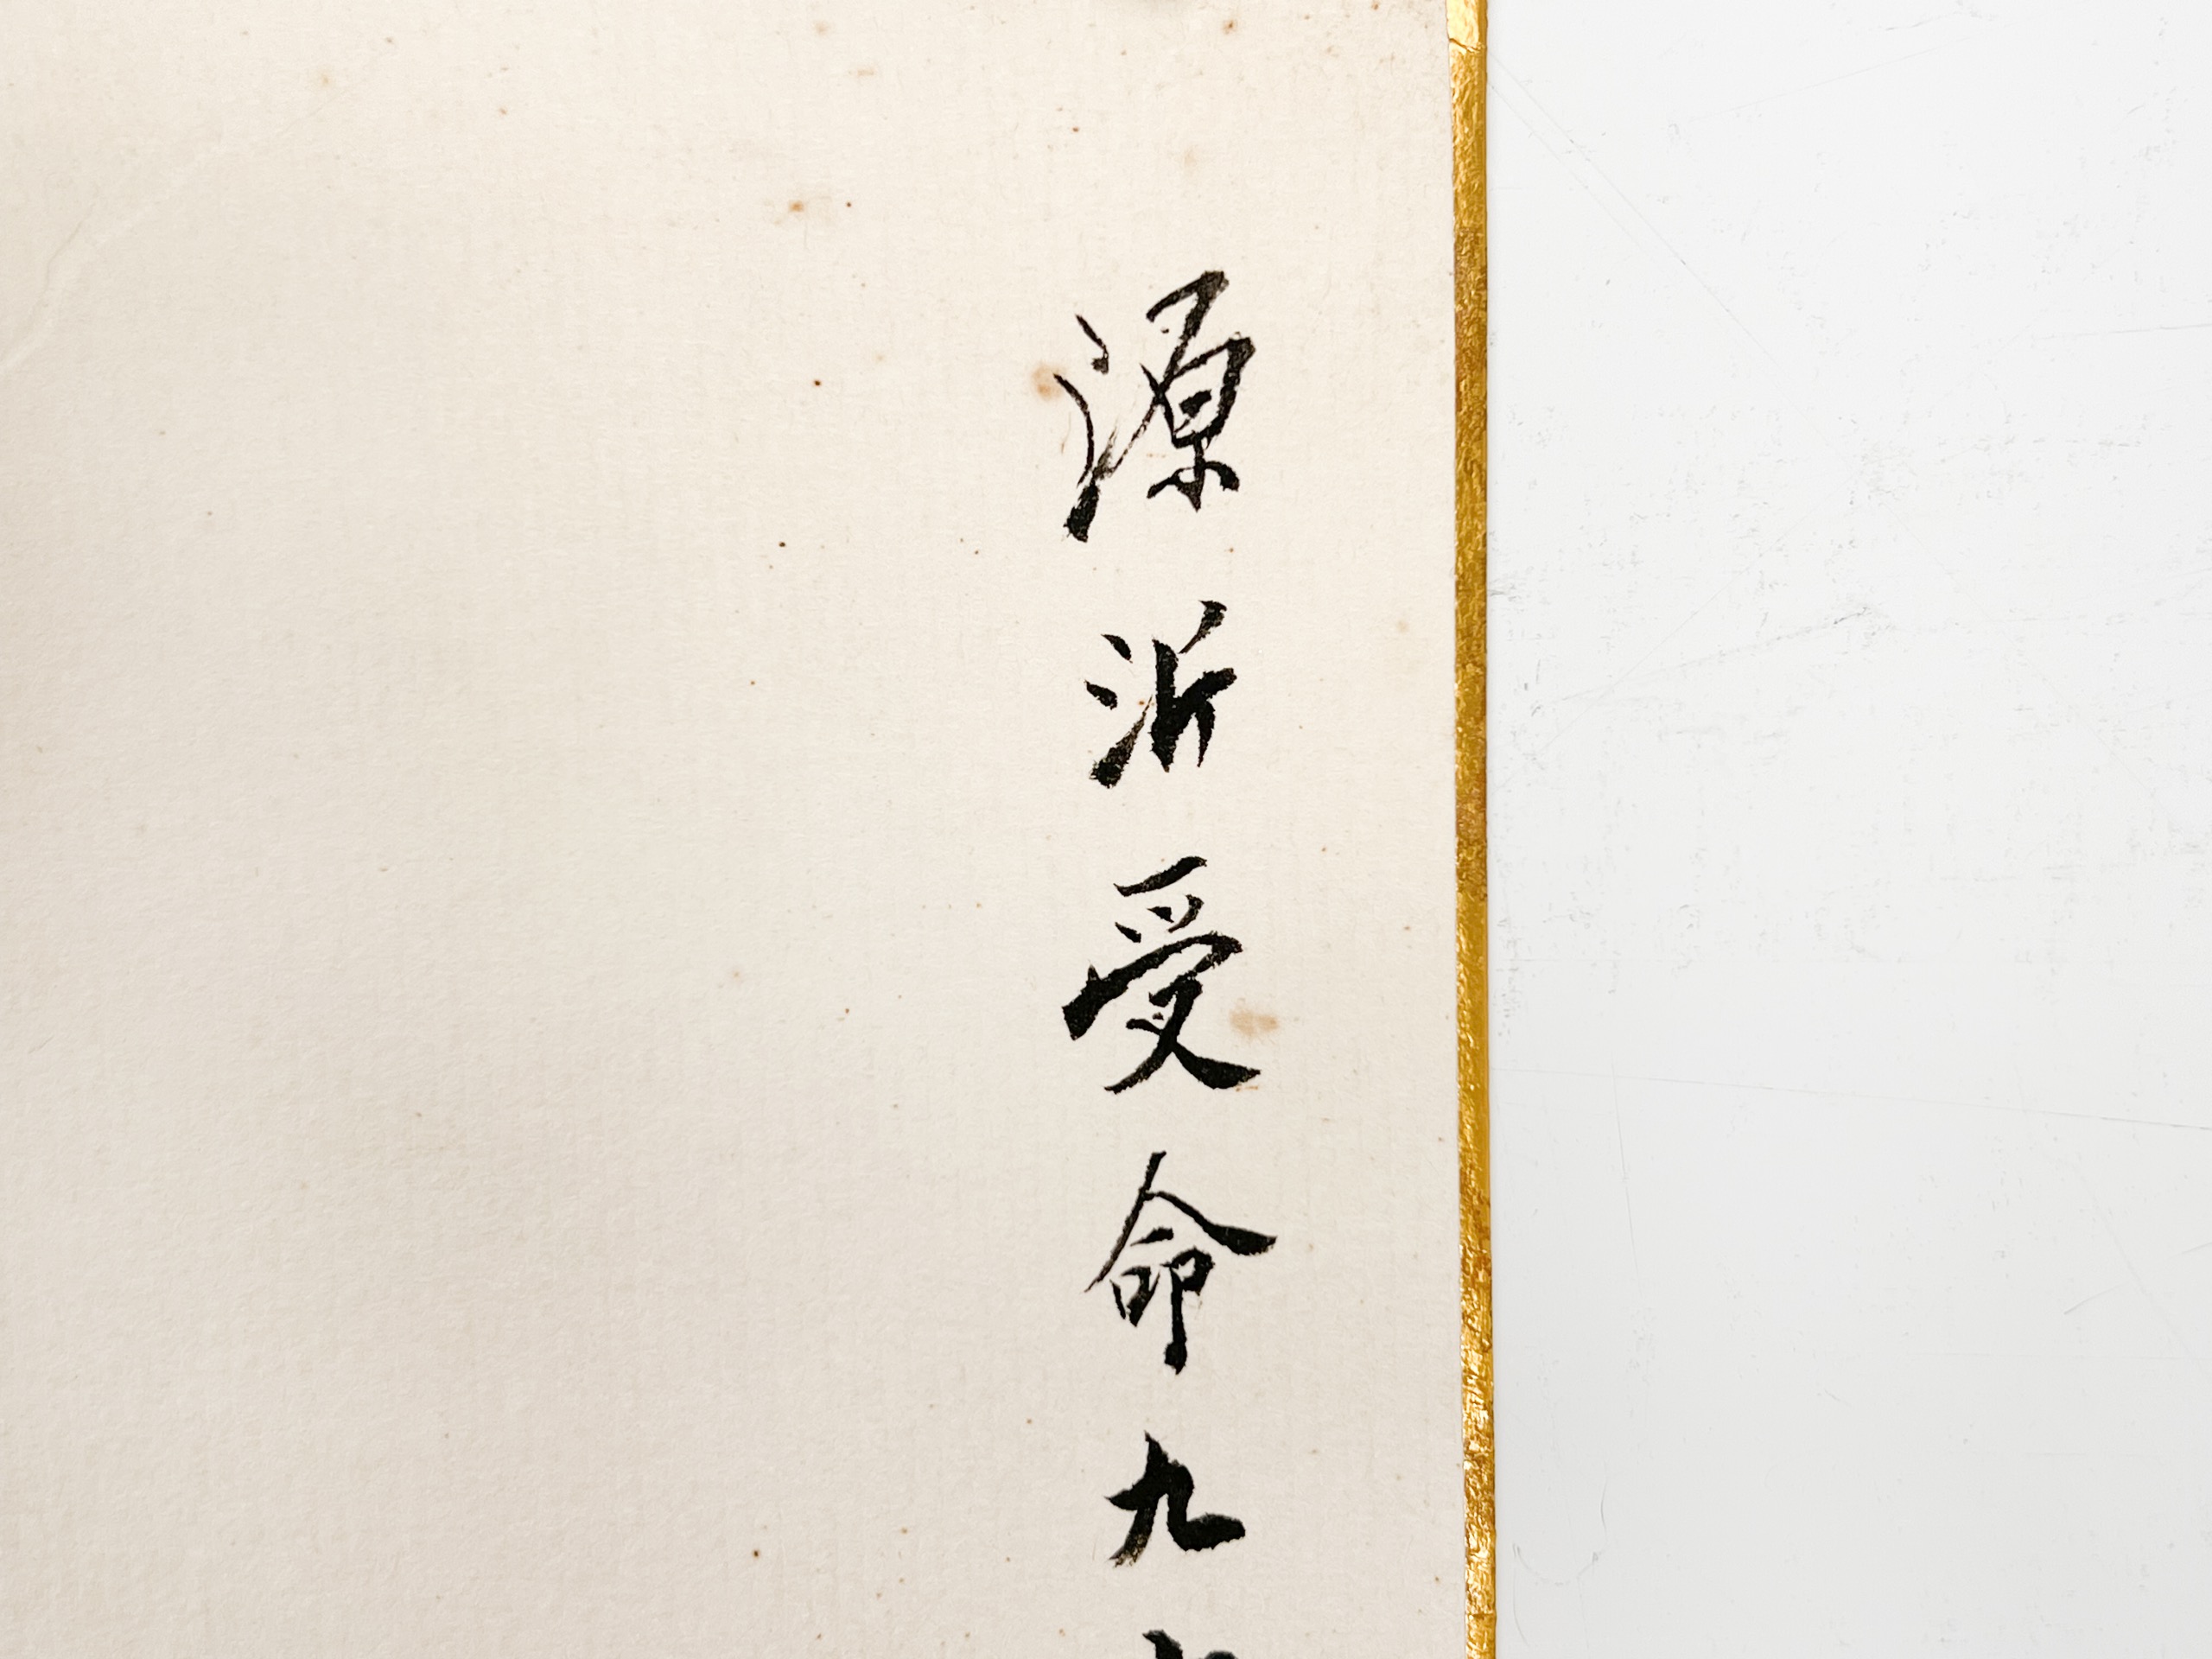 源沂受命九